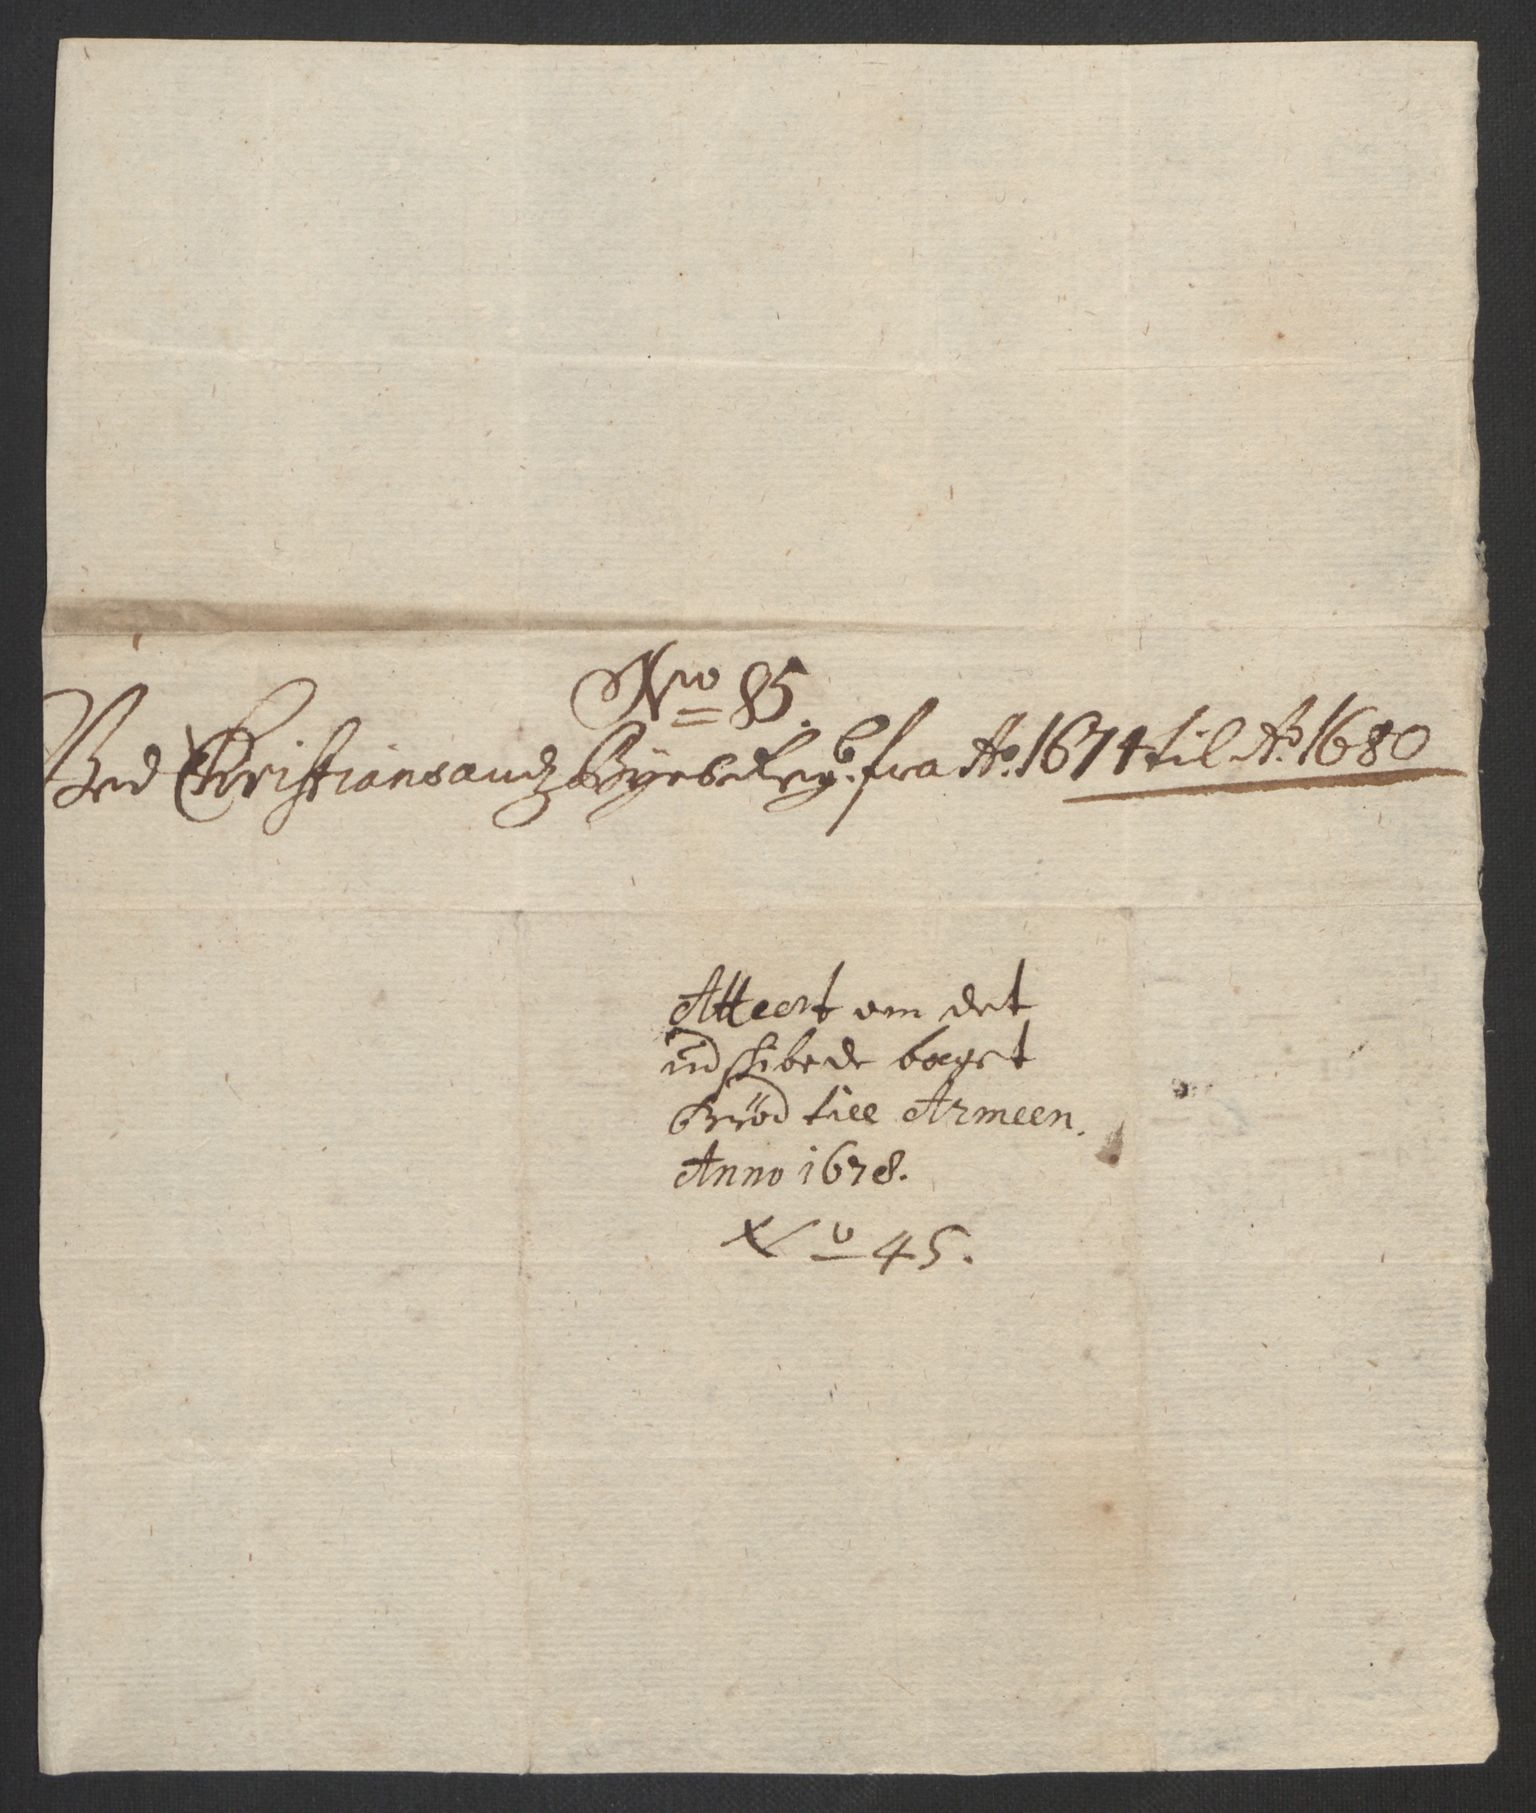 No 85.
Ved Christiansandz Byes Regb. fra Ao. 1674 til Ao. 1680
Attest om det
udskibede baget
Brød till Armeen.
Anno 1678.
No 45.